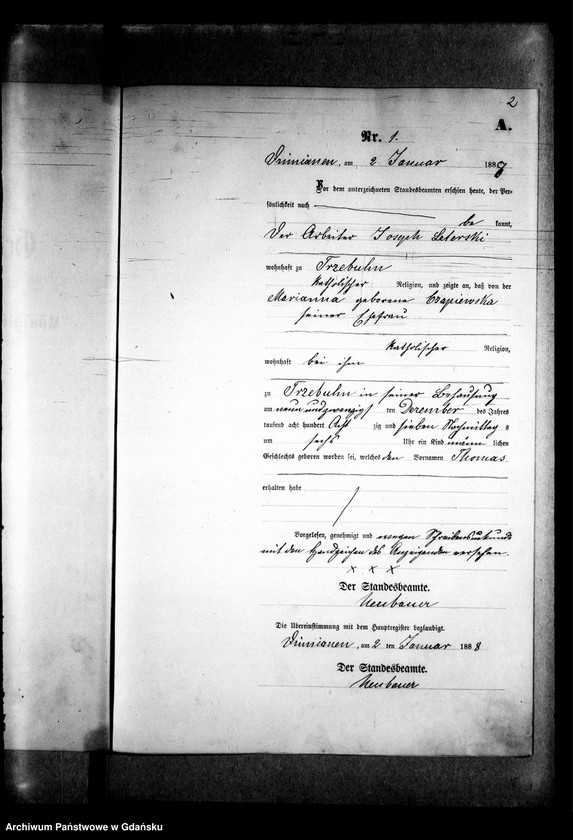 2
A.
Nr. 1.
am 2 Januar 1888
Vor dem unterzeichneten Standesbeamten erschien heute, der Per-
sönlichkeit nach
be kannt,
Der Arbeiter Joseph Leterski
wohnhaft zu Trzebuhn
katholischer Religion, und zeigte an, daß von der
Marianna geborene Czapiewska
seiner Ehefrau
katholischer Religion,
wohnhaft bei ihm
zu Trzebuhn in seiner Behausung
am neun und zwanzigsten Dezember des Jahres
tausend acht hundert acht zig und sieben Nachmittags
um sechs Uhr ein Kind männ lichen
Geschlechts geboren worden sei, welches den Vornamen Thomas
erhalten habe
Vorgelesen, genehmigt und wegen Schreibensunkunde
mit den Handzeichen des Anzeigenden versehen.
x x x
Der Standesbeamte.
Neubauer
Die Übereinstimmung mit dem Hauptregister beglaubigt.
am 2 ten Januar 1888
Der Standesbeamte.
Neubauer
Archiwum Państwowe w Gdańsku